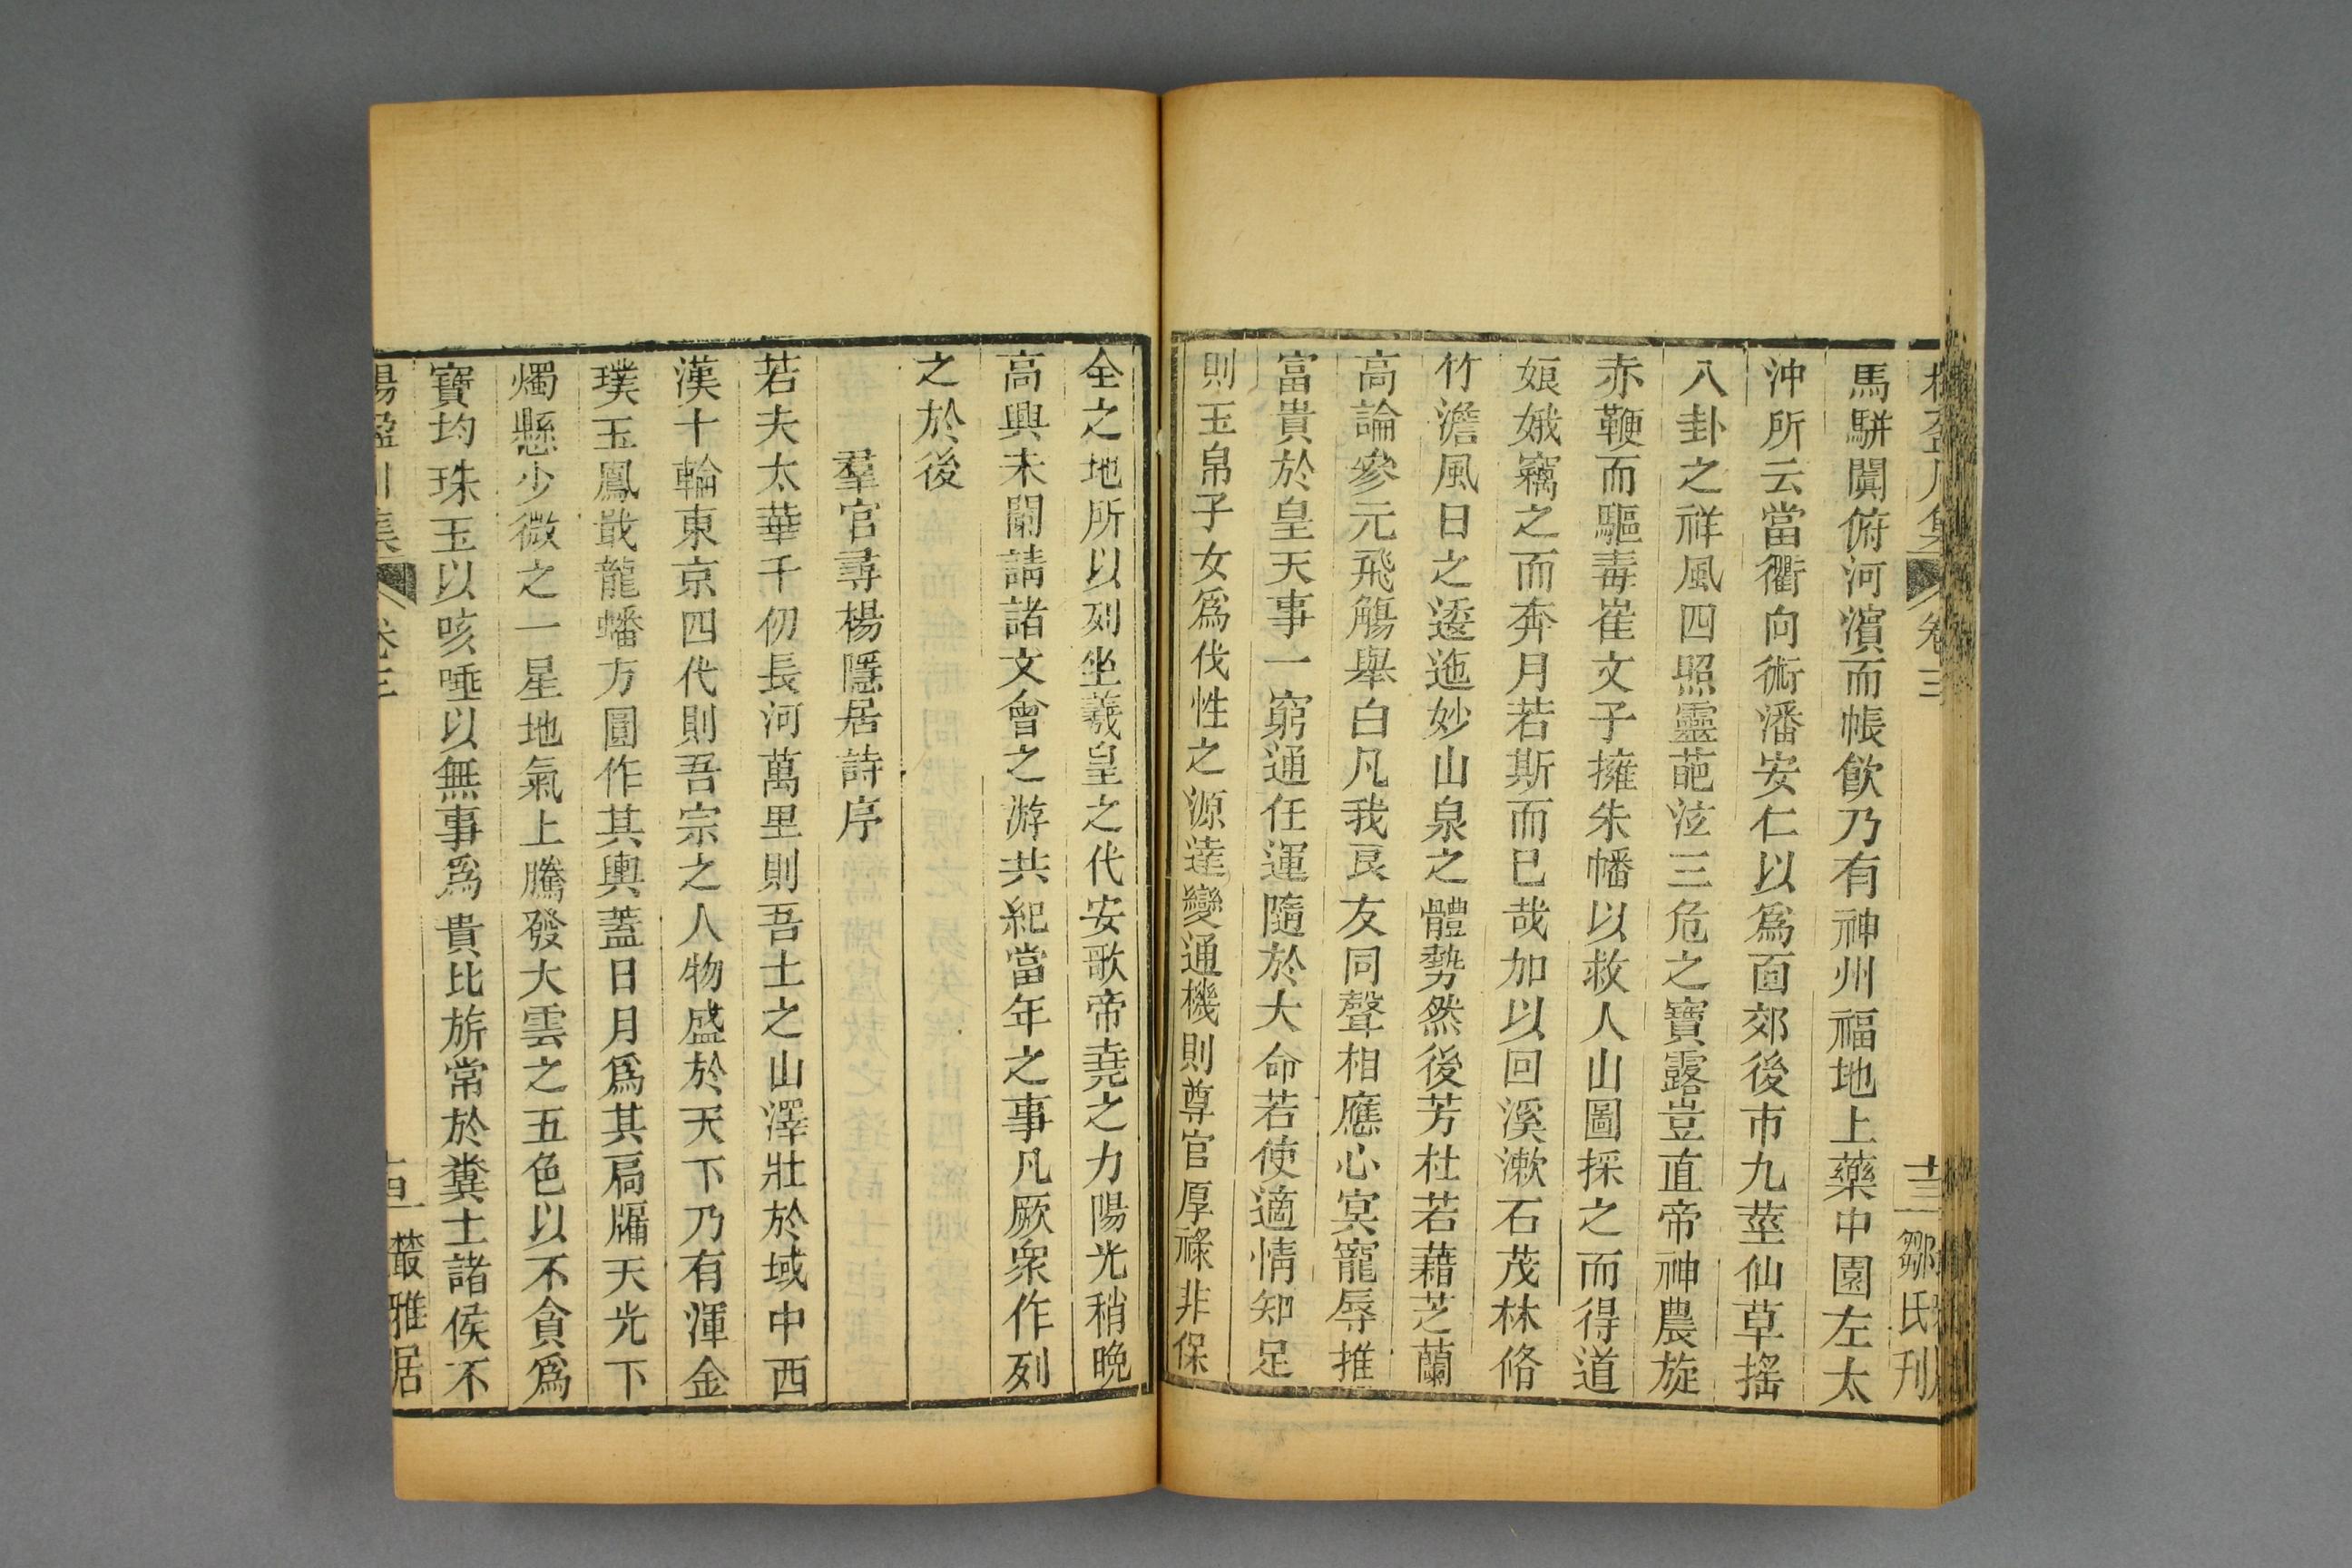 卷三
十三
鄒氏刋
馬駢闐俯河濵而帳飲乃有神州福地上藥中園左太
沖所云當衢向術潘安仁以爲面郊後市九莖仙草搖
八卦之祥風四照靈葩泫三危之寶露豈直帝神農旋
赤鞭而驅毒崔文子擁朱幡以救人山圖採之而得道
姮娥竊之而奔月若斯而已哉加以回溪漱石茂林俻
竹澹風日之逶迤妙山泉之體勢然後芳杜若藉芝蘭
高論參元飛觴舉白凡我良友同聲相應心冥寵辱推
富貴於皇天事一窮通任運隨於大命若使適情知足
則玉帛子女爲伐性之源達變通機則尊官厚祿非保
全之地所以列坐羲皇之代安歌帝堯之力陽光稍晚
高興未闌請諸文會之游共紀當年之事凡厥衆作列
之於後
羣官尋楊隱居詩序
若夫太華千仞長河萬里則吾土之山澤壯於域中西
漢十輪東京四代則吾宗之人物盛於天下乃有渾金
璞玉鳳戢龍蟠方圓作其輿蓋日月爲其扃牖天光下
燭懸少微之一星地氣上騰發大雲之五色以不貪爲
寶均珠玉以咳唾以無事爲貴比旂常於糞土諸侯不
叢雅居